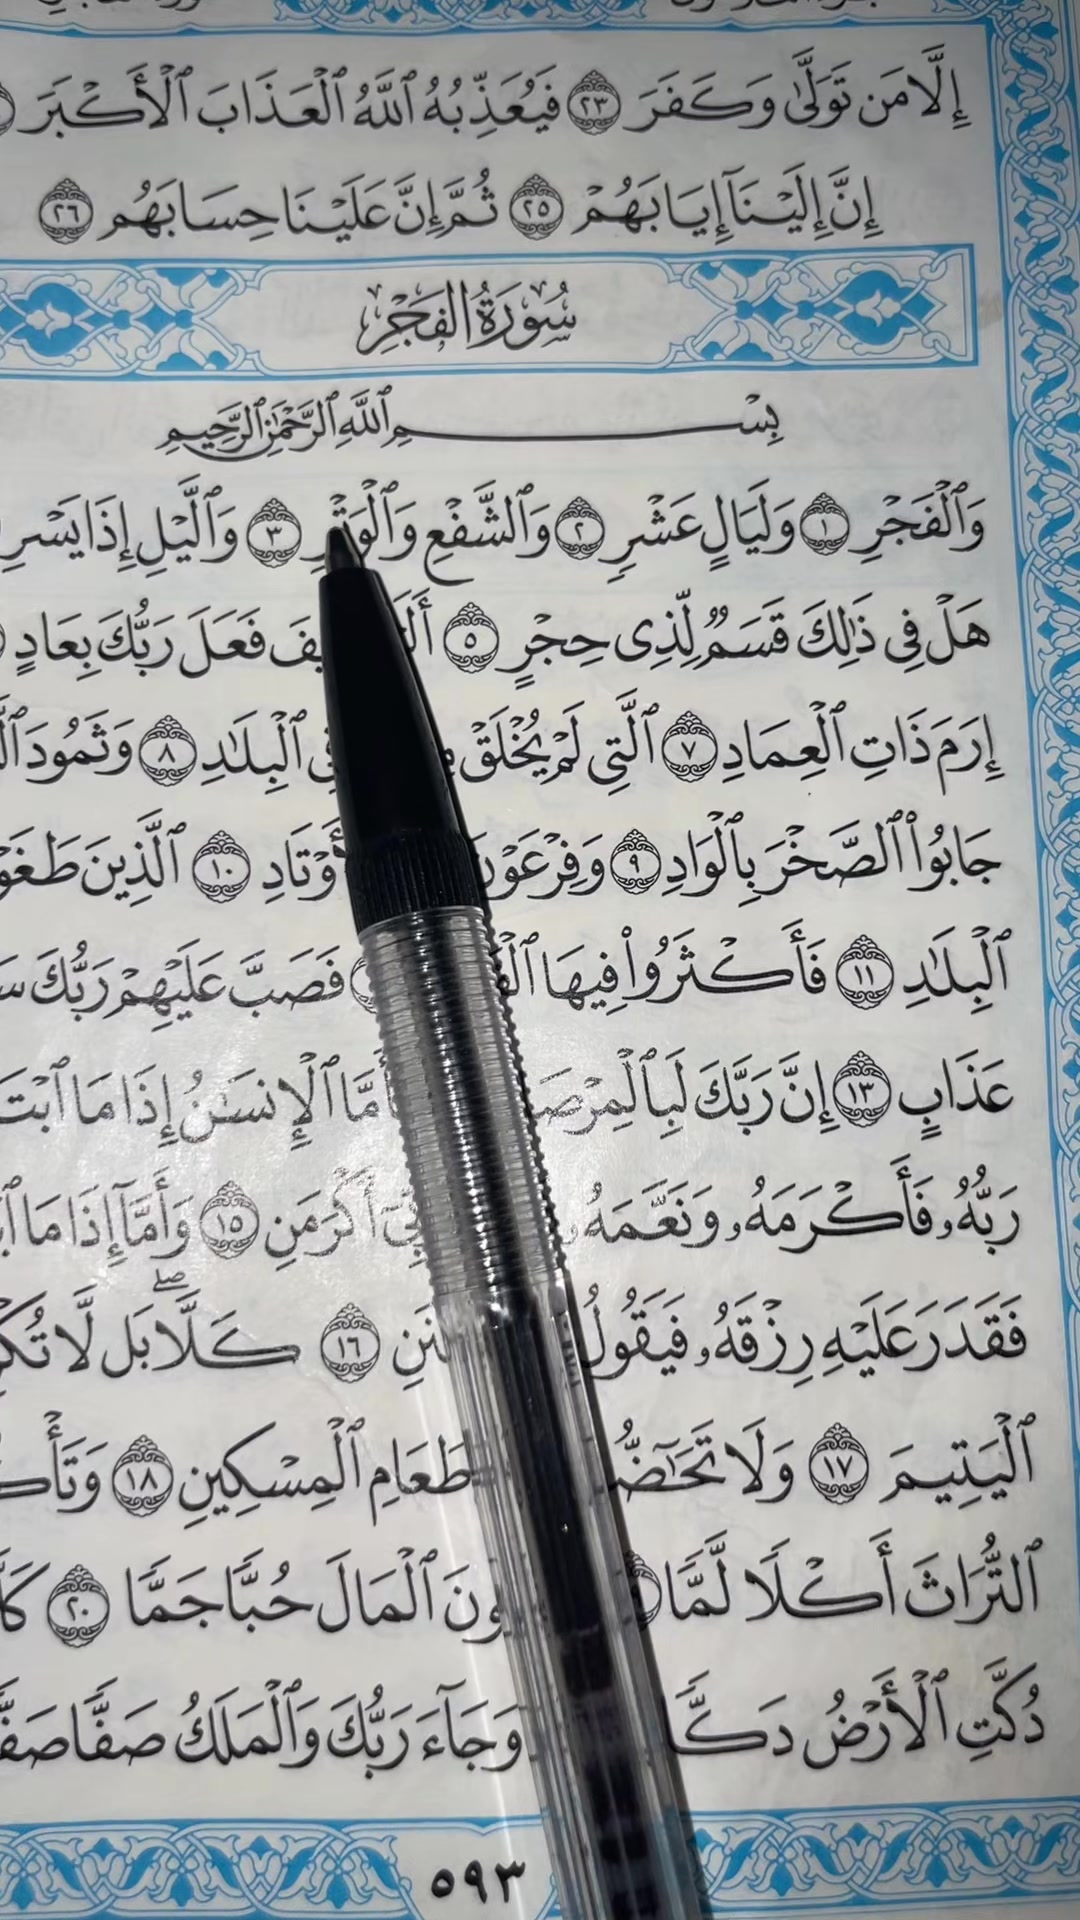 إِلَّا مَن تَوَلَّىٰ وَكَفَرَ ٢٣ فَيُعَذِّبُهُ ٱللَّهُ ٱلْعَذَابَ ٱلْأَكْبَرَ
إِنَّ إِلَيْنَآ إِيَابَهُمْ ٢٥ ثُمَّ إِنَّ عَلَيْنَا حِسَابَهُم ٢٦
سُورَةُ الفَجْرِ
بِسْمِ ٱللَّهِ ٱلرَّحْمَٰنِ ٱلرَّحِيمِ
وَٱلْفَجْرِ ١ وَلَيَالٍ عَشْرٍ ٢ وَٱلشَّفْعِ وَٱلْوَتْرِ ٣ وَٱلَّيْلِ إِذَا يَسْرِ
هَلْ فِى ذَٰلِكَ قَسَمٌ لِّذِى حِجْرٍ ٥ فَعَلَ رَبُّكَ بِعَادٍ
إِرَمَ ذَاتِ ٱلْعِمَادِ ٧ ٱلَّتِى لَمْ يُخْلَقْ ٱلْبِلَٰدِ ٨ وَثَمُودَ
جَابُوا۟ ٱلصَّخْرَ بِٱلْوَادِ ٩ وَفِرْعَوْنَ ٱلْأَوْتَادِ ١٠ ٱلَّذِينَ طَغَوْا۟
ٱلْبِلَٰدِ ١١ فَأَكْثَرُوا۟ فِيهَا فَصَبَّ عَلَيْهِمْ رَبُّكَ
عَذَابٍ ١٣ إِنَّ رَبَّكَ لَبِٱلْمِرْصَادِ فَأَمَّا ٱلْإِنسَٰنُ إِذَا مَا
رَبُّهُۥ فَأَكْرَمَهُۥ وَنَعَّمَهُۥ رَبِّىٓ أَكْرَمَنِ ١٥ وَأَمَّآ إِذَا مَا
فَقَدَرَ عَلَيْهِ رِزْقَهُۥ فَيَقُولُ ١٦ كَلَّا ۖ بَل لَّا
ٱلْيَتِيمَ ١٧ وَلَا تَحَٰٓضُّونَ طَعَامِ ٱلْمِسْكِينِ ١٨
ٱلتُّرَاثَ أَكْلًا لَّمًّا ٱلْمَالَ حُبًّا جَمًّا ٢٠
دُكَّتِ ٱلْأَرْضُ دَكًّا وَجَآءَ رَبُّكَ وَٱلْمَلَكُ صَفًّا صَفًّا
٥٩٣